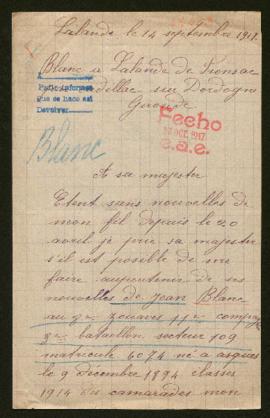 Lalande le 14 septembre 1917
Blanc a Lalande de Fronsac
sur Dordogne
Gironde
Pedir informes
que se hace así
Devolver
Fecho
OCT. 1917
Blanc
A sa majester
Etent sans nouvelles de
mon fil depuis le 20
avril je prie sa majester
s'il est posible de me
faire de ses
nouvelles de Jean Blanc
au zouaves 11e
bataillon secteur 109
matricule 6074 né a asques
le 9 décembre 1894 classes
1914 camarades mon